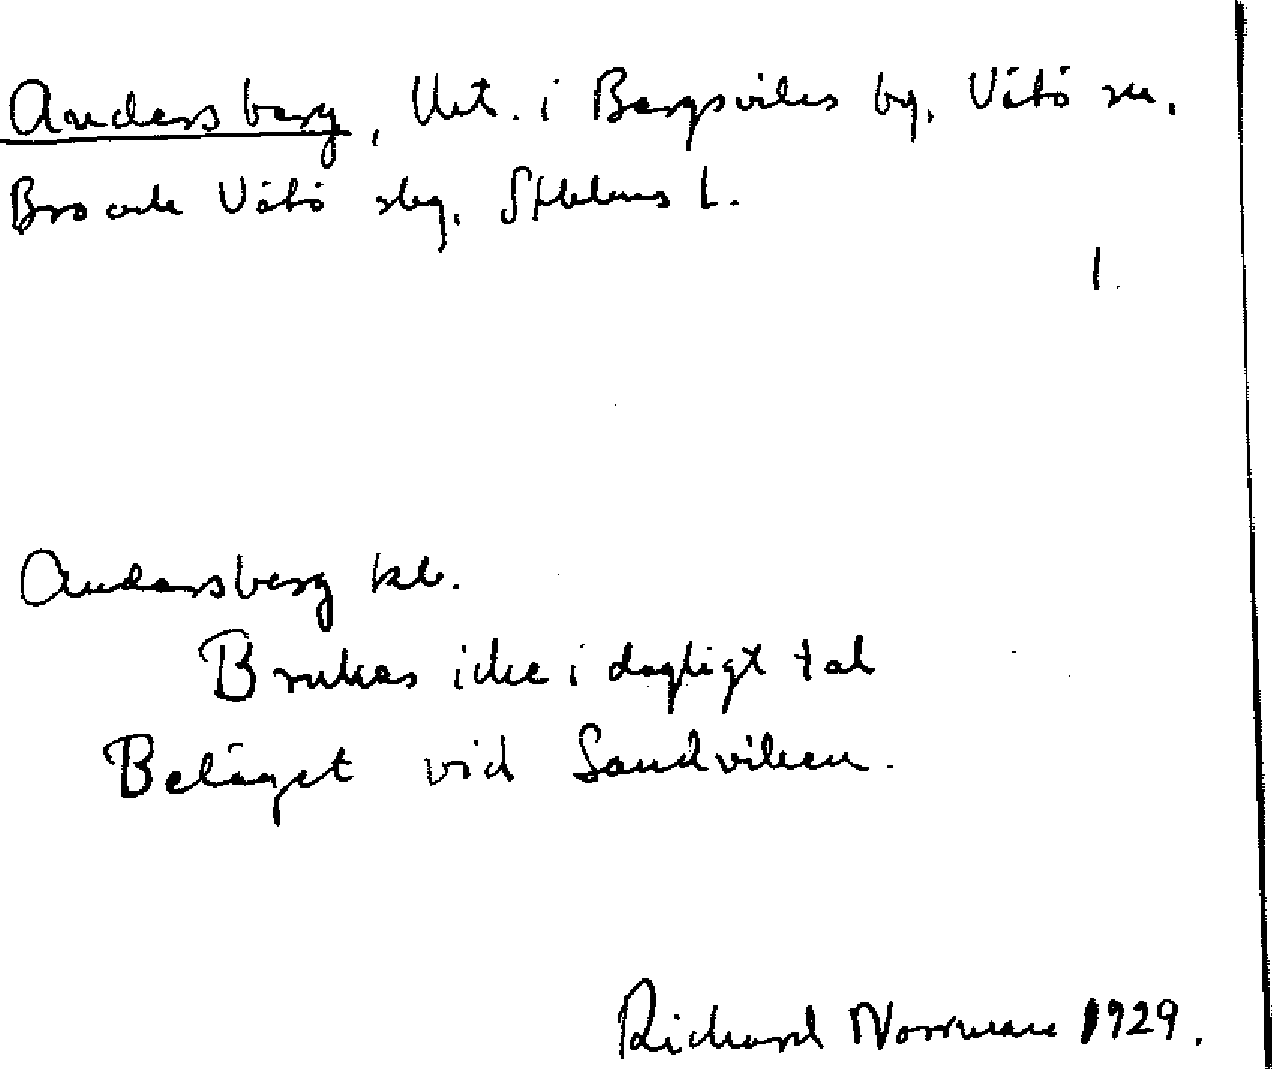 Andersberg, Utt. i Bergsviks by, Vätö sn.
Bro och Vätö skg, Sthlms l.
1.
Andersberg kb.
Brukas icke i dagligt tal
Beläget vid Sandviken.
Richard Norrman 1929.